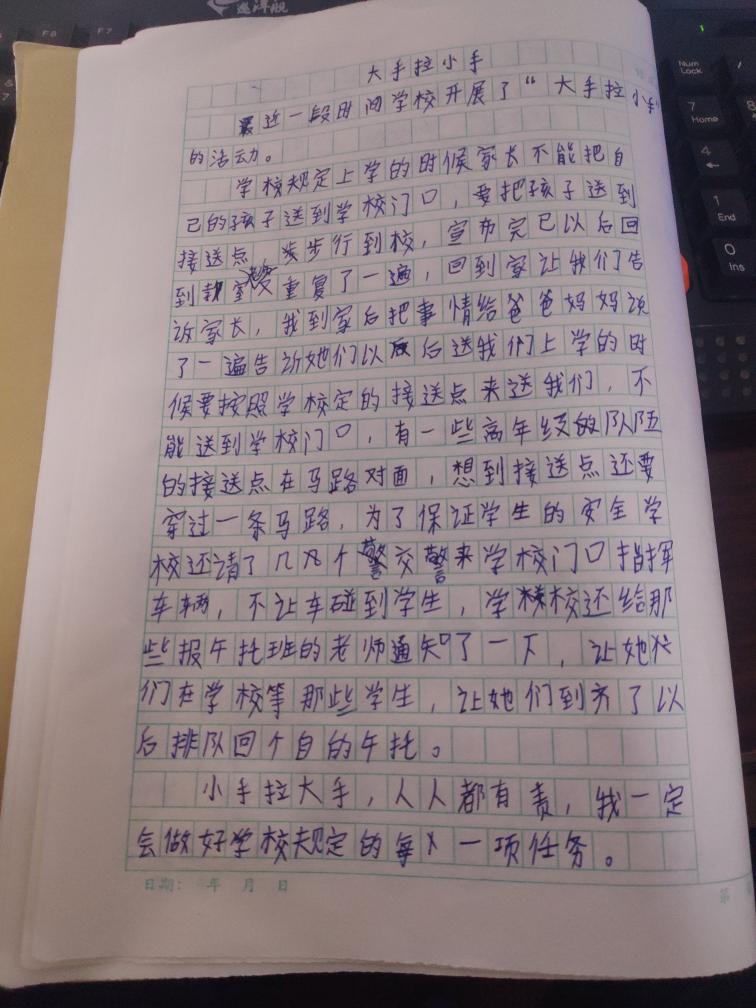 大手拉小手
最近一段时间学校开展了“大手拉小手”
的活动。
学校规定上学的时候家长不能把自
己的孩子送到学校门口，要把孩子送到
接送点，步行到校，宣布完已以后回
到教室又重复了一遍，回到家让我们告
诉家长，我到家后把事情给爸爸妈妈说
了一遍告诉她们以后送我们上学的时
候要按照学校定的接送点来送我们，不
能送到学校门口，有一些高年级的队伍
的接送点在马路对面，想到接送点还要
穿过一条马路，为了保证学生的安全学
校还请了几个交警来学校门口指挥
车辆，不让车碰到学生，学校还给那
些报午托班的老师通知了一下，让她
们在学校等那些学生，让她们到齐了以
后排队回个自的午托。
小手拉大手，人人都有责，我一定
会做好学校规定的每一项任务。
日期： 年 月 日
第
Num
Lock
7
Home
4
1
End
0
Ins
F6
F7